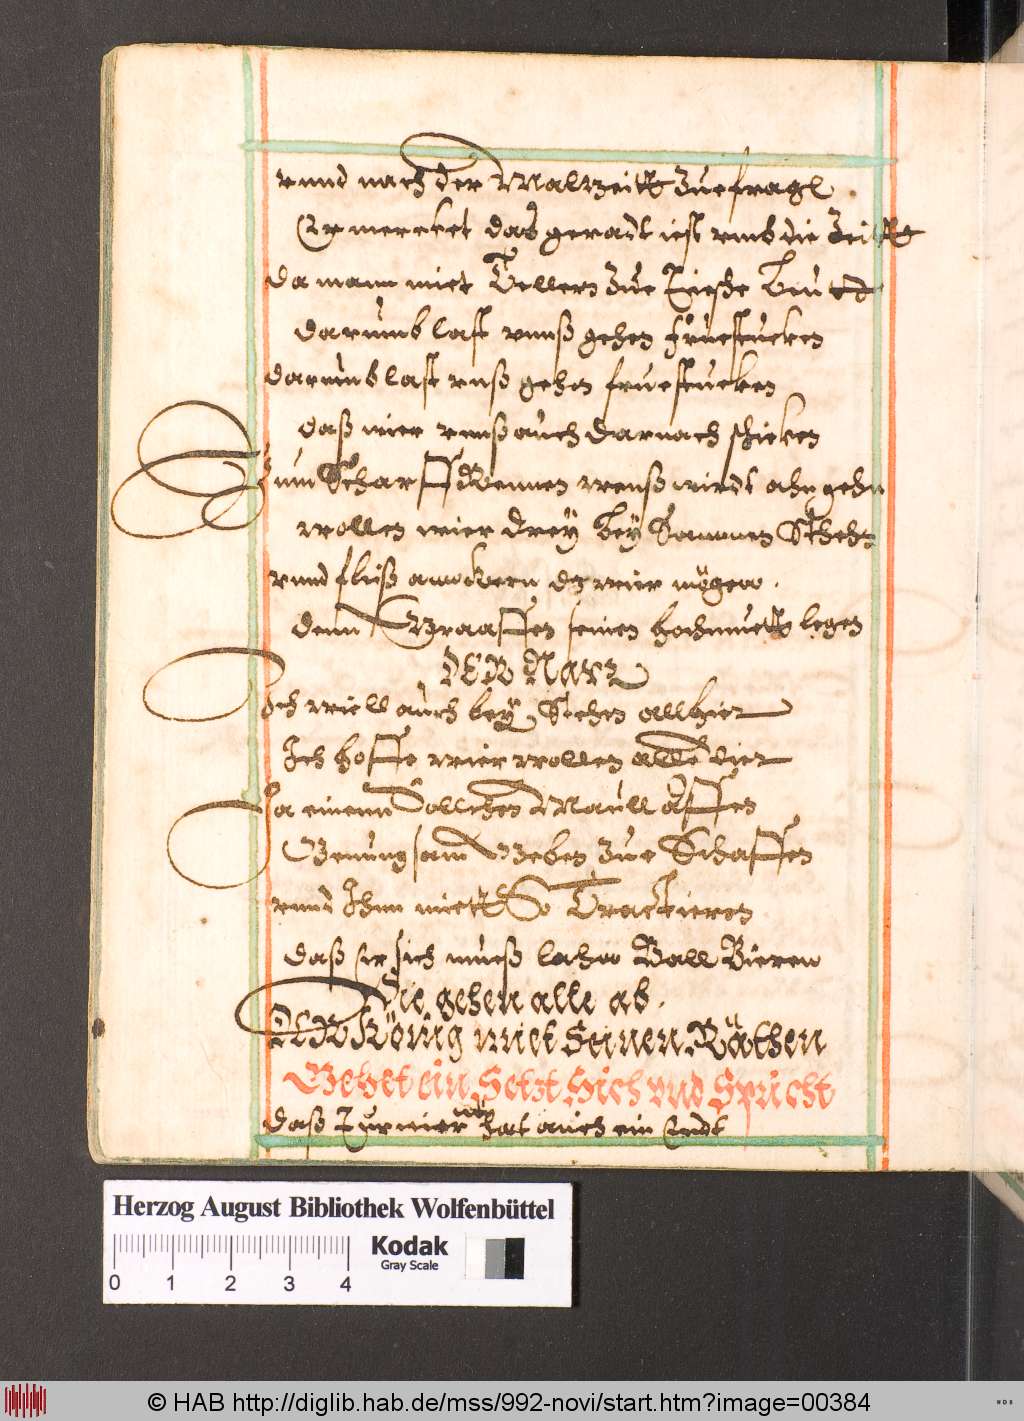 vnnd nach der Maltzeitt zue fragl.
Er mercket das geradt ist vmb die Zeitt
da mann miet Tellern zue Tische leutt
darumb last vnnß gehen fruestucken
darumb last vnß gehn fruestucken
daß wier vnnß auch darnach schicken
Zum Scharff Rennen vnnß wirdt ahn gehn
wollen wier drey bey Sammen Stehn
vnnd fleiß
denn Graaffen seinen hochmuett legen
DER Narr
Ich will auch bey Stehen allhier
Ich hoffe wier wollen alle vier
Ja einenn Sollichen Maull affen
Genungsam Geben zue Schaffen
vnnd Ihnn miett So Tracktieren
daß er sich mueß lahn Ball Bieren
Sie gehen alle ab.
DER König miet Seinen Räthen
Gehet ein Setzt Sich vnd Spricht
daß Turnier hat auch ein Endt
Herzog August Bibliothek Wolfenbüttel
Kodak
Gray Scale
0 1 2 3 4
© HAB http://diglib.hab.de/mss/992-novi/start.htm?image=00384